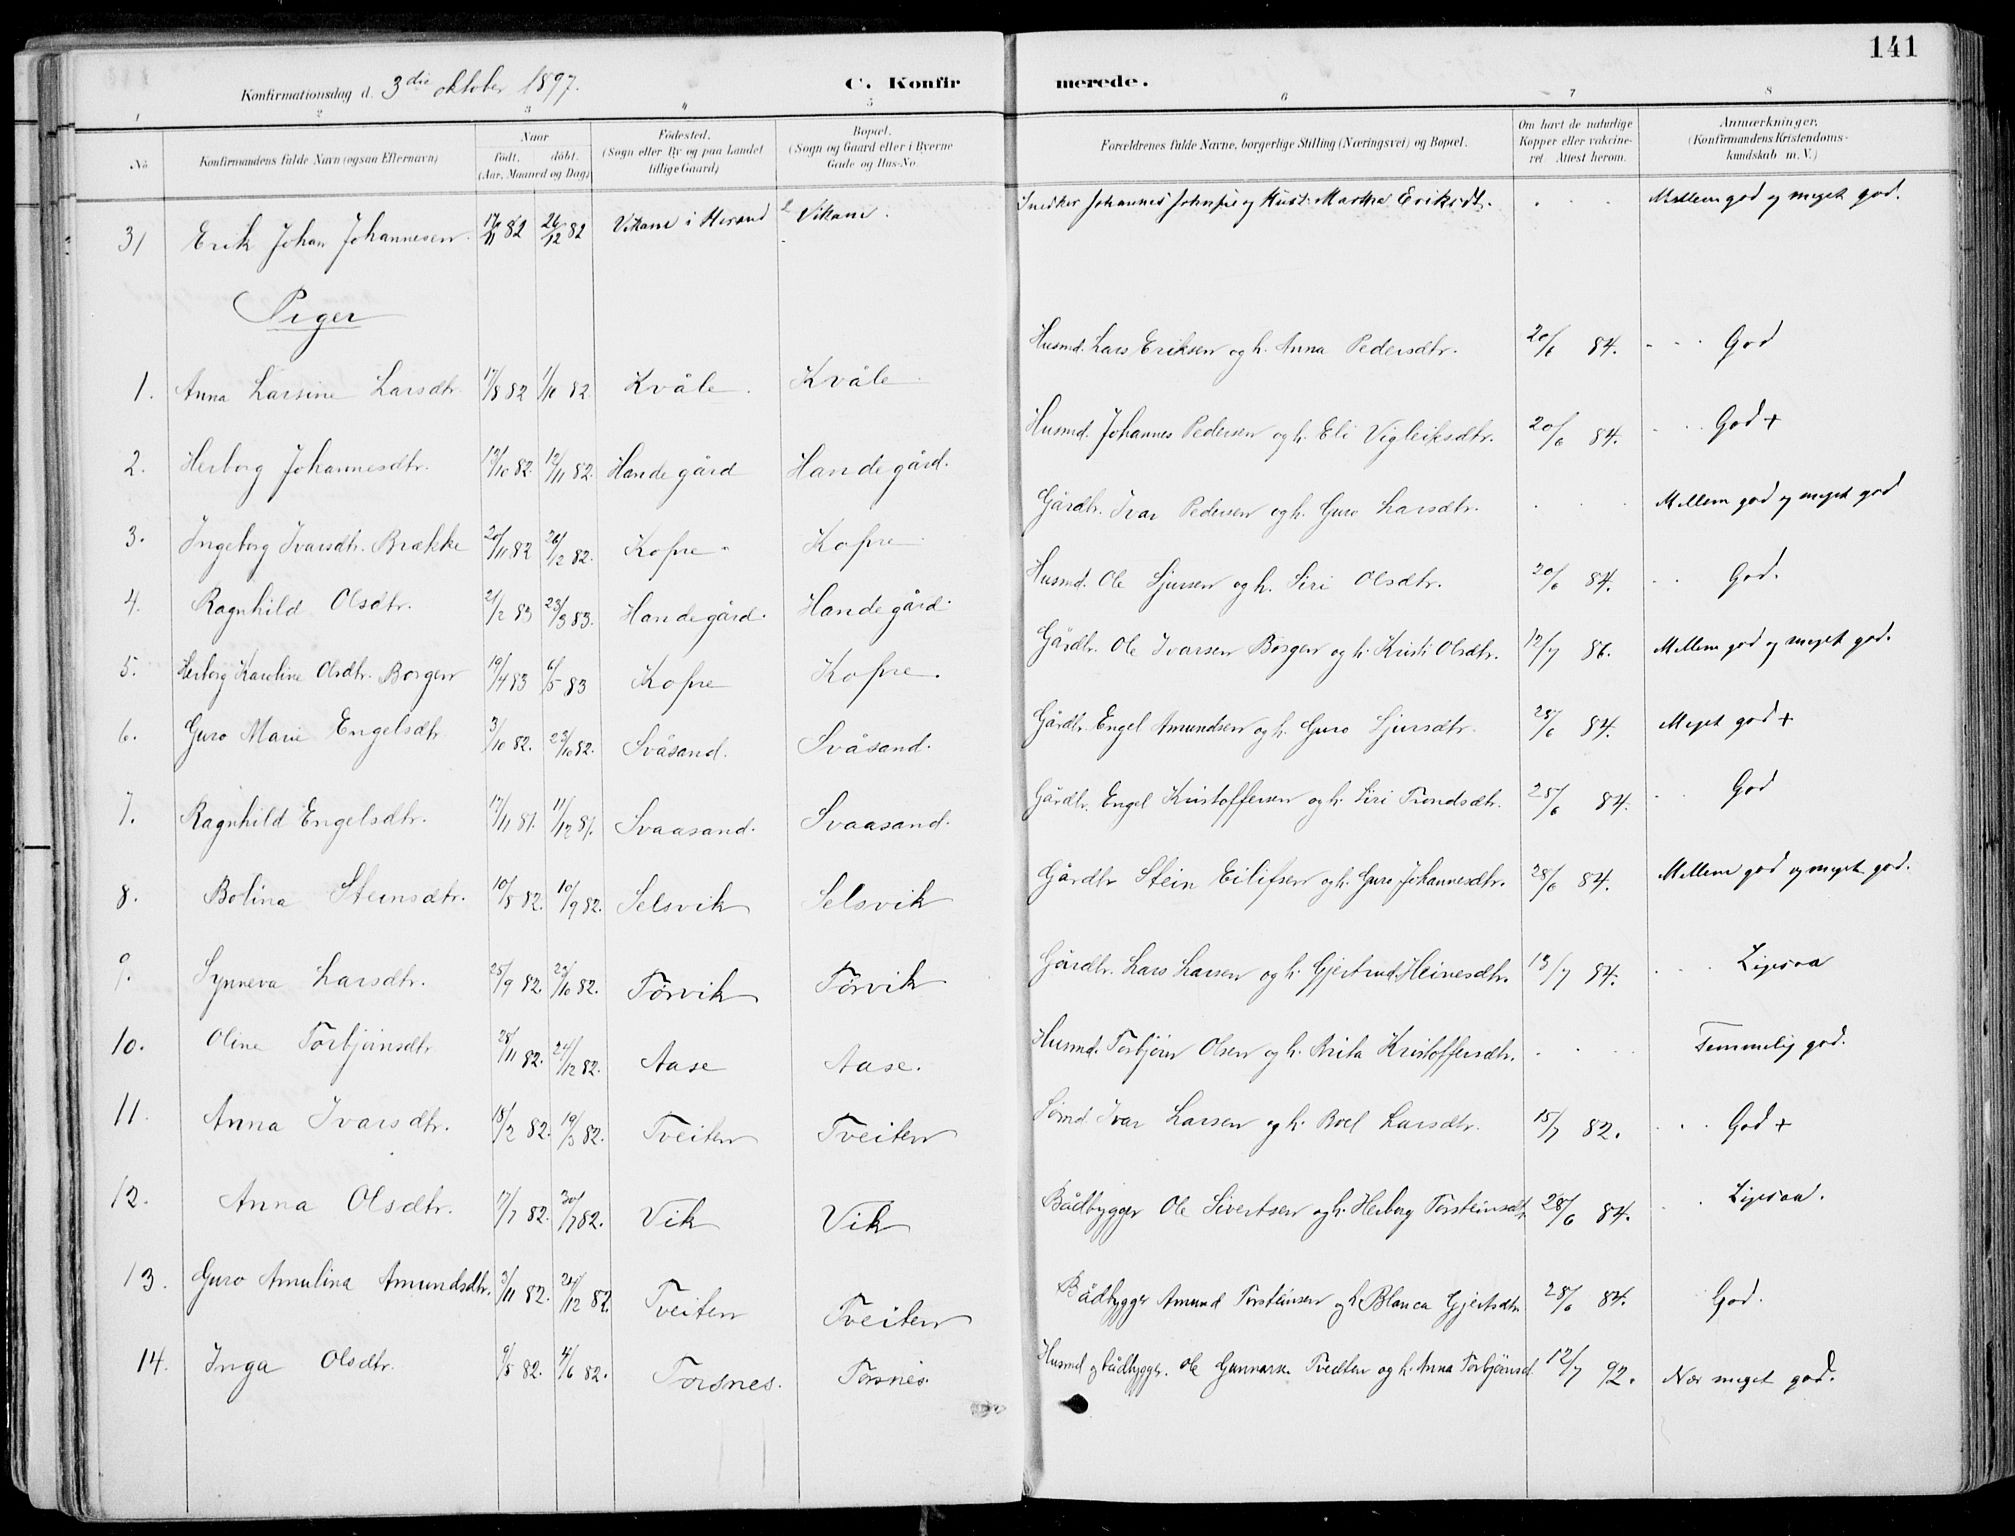 141
Konfirmationsdag d. 3die oktober 1897. C. Konfirmerede.
1 2 3 4 5 6 7 8
No Konfirmandens fulde Navn (ogsaa Efternavn) Naar født. døbt. (Aar, Maaned og Dag) Fødested. (Sogn eller By og paa Landet tillige Gaard) Bopæl. (Sogn og Gaard eller i Byerne Gade og Hus-No. Forældrenes fulde Navne, borgerlige Stilling (Næringsvei) og Bopæl. Om havt de naturlige Kopper eller vakcineret Attest herom. Anmærkninger. (Konfirmandens Kristendomskundskab m. V.)
31 Erik Johan Johannesen 17/11 82 26/12 82 Vikane i Herand Vikane. Snedker Johannes Johnsen og Hust. Martha Eriksdt. . . . Mellem god og meget god.
Piger
1. Anna Larsine Larsdtr. 17/8 82 1/10 82. Kvåle. Kvåle Husmd. Lars Eriksen og h. Anna Pedersdtr. 20/6 84. . . . God
2. Herborg Johannesdtr. 12/10 82. 12/11 82. Handegård Handegård. Husmd. Johannes Pedersen og h. Eli Vigleiksdtr. 20/6 84. . . . God +
3. Ingeborg Ivarsdtr. Brække 20/11 82 26/12 82. Kofre Kofre Gårdbr. Ivar Pedersen og h. Guro Larsdtr. . . . Mellem god og meget god
4. Ragnhild Olsdtr. 21/2 83 23/3 83. Handegård. Handegård. Husmd. Ole Sjursen og h. Siri Olsdtr. 20/6 84. . . God.
5. Herborg Karoline Olsdtr. Borgen 19/4 83 6/5 83 Kofre Kofre. Gårdbr. Ole Ivarsen Borgen og h. Kristi Olsdtr. 12/7 86. Mellem god og meget god.
6. Guro Marie Engelsdtr. 3/10 82. 23/10 82. Svåsand. Svåsand. Gårdbr. Engel Amundsen og h. Guro Sjursdtr. 28/6 84. Meget god +
7. Ragnhild Engelsdtr. 17/11 81. 11/12 81. Svaasand. Svaasand. Gårdbr. Engel Kristoffersen og h. Siri Trondsdtr. 28/6 84. . . God
8. Bolina Steinsdtr. 10/8 82. 10/9 82. Selsvik Selsvik Gårdbr. Stein Eilifsen og h. Guro Johannesdtr. 28/6 84. Mellem god og meget god.
9. Synneva Larsdtr. 25/9 82. 22/10 82. Tørvik Tørvik Gårdbr. Lars Larsen og h. Gjertrud Heinesdtr. 13/7 84. . . . Ligesaa
10. Oline Torbjørnsdtr. 28/11 82. 24/12 82. Aase Aase. Husmd. Torbjørn Olsen og h. Brita Kristoffersdtr. . . . Temmelig god.
11. Anna Ivarsdtr. 18/2 82. 19/3 82. Tveiten Tveiten Sømd. Ivar Larsen og h. Boel Larsdtr. 15/7 82. . . . God +
12. Anna Olsdtr. 17/7 82. 30/7 82. Vik Vik Bådbygger Ole Sivertsen og h. Herborg Torsteinsdt. 28/6 84. . . Ligesaa.
13. Guro Amulina Amundsdtr. 3/11 82. 24/12 82. Tveiten Tveiten Bådbygger Amund Torsteinsen og h. Blanca Gjertsdtr 28/6 84. God.
14. Inga Olsdtr. 9/5 82. 4/6 82. Torsnes. Torsnes. Husmd. og bådbygger. Ole Gunnars. Tveiten og h. Anna Torbjørnsd. 12/7 92. Nær meget god.